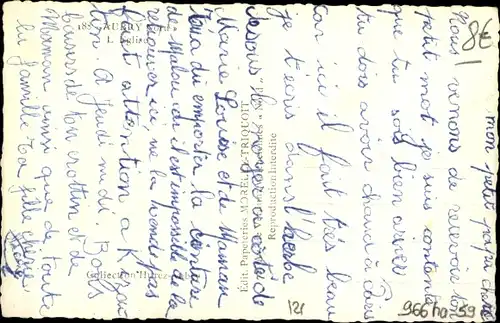 mon petit papa chéri
Nous venons de recevoir ton
petit mot je suis contente
que tu sois bien arrivé
tu dois avoir chaud à Paris
car ici il fait très beau
je t'écris dans l'herbe
dessous le à côté de
Marie Louise et de Maman
Tu as du emporter la ceinture
de Malou car il est impossible de la
retrouver ici, ne la vend pas
fait attention à
A jeudi midi Bons
baisers de ton trottin et de
Maman ainsi que de toute
la famille Ta fille chérie
8€
183 - AUBRY
L'Eglise
Edit. Papeteries MOREL et TRIQUOIT
Reproduction Interdite
Collection
121
966 ha 59